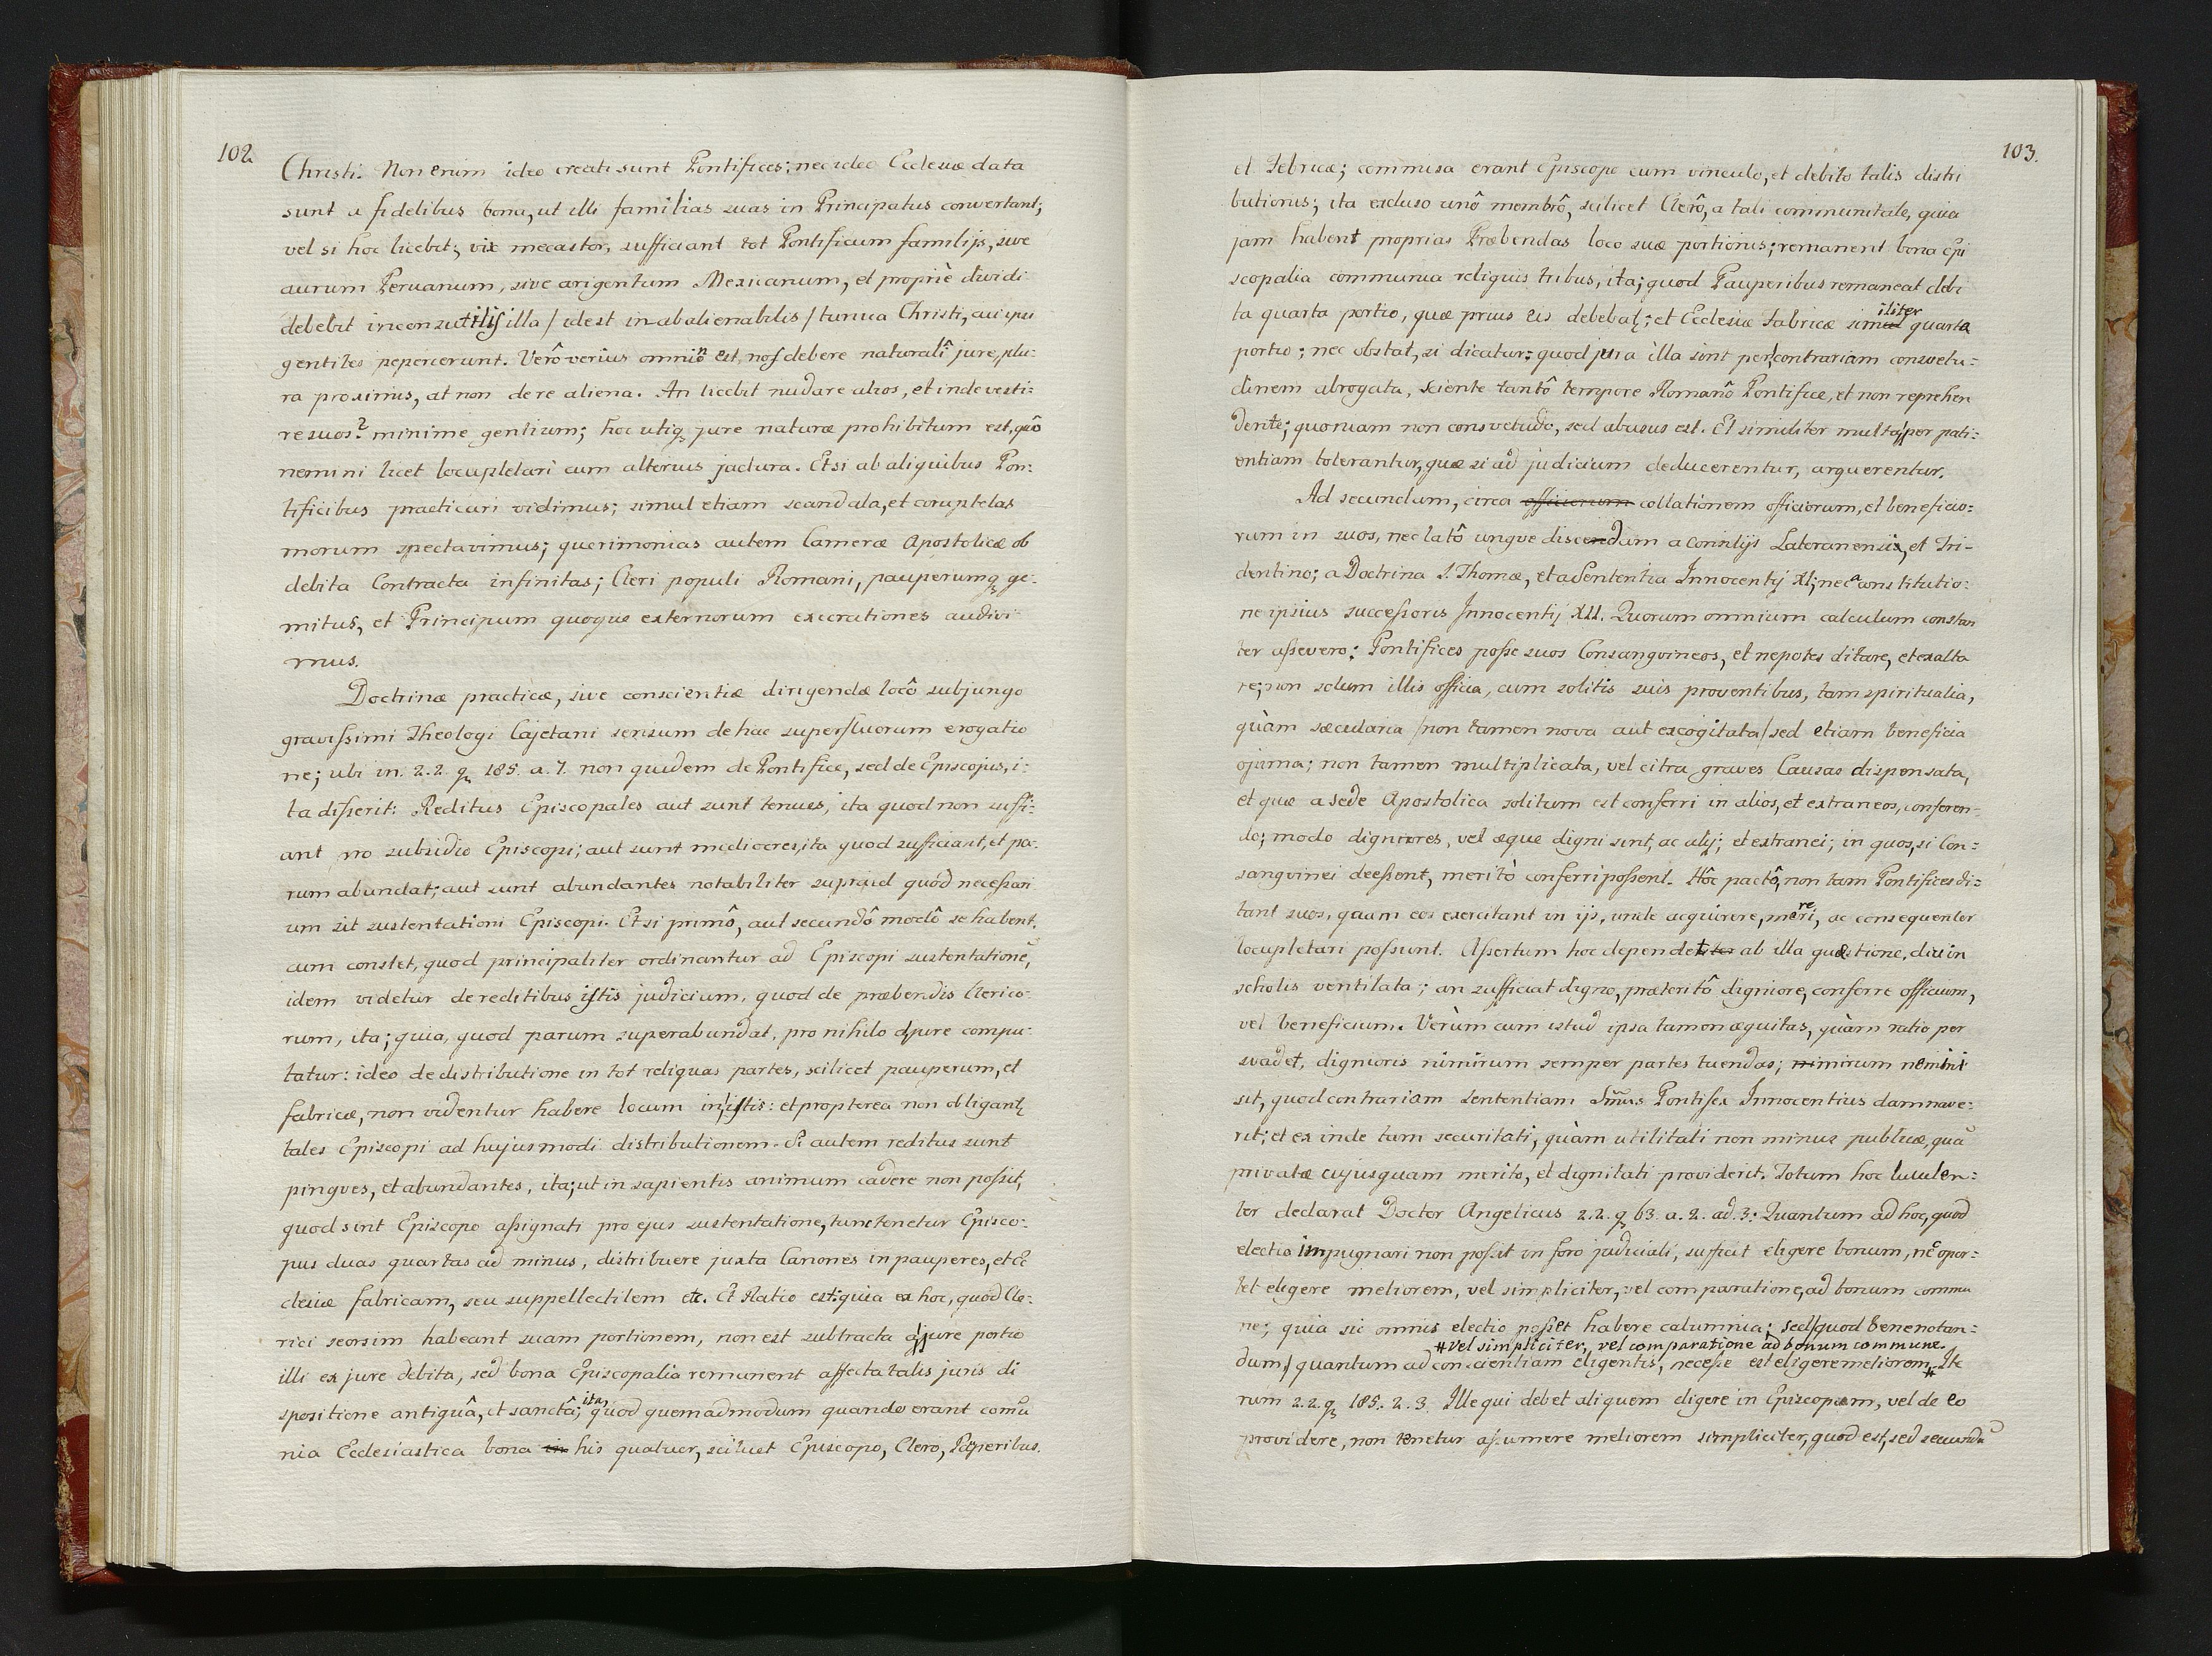 102
Christi. Non enim ideo creati sunt Pontifices; nec ideo Ecclesiæ data
sunt a fidelibus bona, ut illi familias suas in Principatus convertant;
vel si hoc licebit; vix mecastor, sufficiant tot Pontificum familijs, sive
aurum Peruanum, sive argentum Mexicanum, et propriè dividi
debebit inconsutilis illa / idest inabalienabilis / tunica Christi, cui ipsi
gentiles pepercerunt. Verô verius omninô est, nos debere naturali jure, plu-
ra proximis, at non de re aliena. An licebit nudare alios, et inde vesti-
re suos? minime gentium; hoc utiq jure naturæ prohibitum est, quô
nemini licet locupletari cum alterius jactura. Et si ab aliquibus Pon-
tificibus practicari vidimus; simul etiam scandala, et coruptelas
morum spectavimus; querimonias autem Cameræ Apostolicæ ob
debita Contracta infinitas; Cleri populi Romani, pauperumq ge-
mitus, et Principum quoque externorum execrationes audivi
mus.
Doctrinæ practicæ, sive conscientiæ dirigendæ locô subjungo
gravissimi Theologi Cajetani sensum de hac superfluorum erogatio
ne; ubi in 2.2. q 185. a. 7. non quidem de Pontifice, sed de Episcopis, i-
ta disserit: Reditus Episcopales aut sunt tenues, ita quod non suffi-
ant pro subsidio Episcopi; aut sunt mediocres, ita quod sufficiant, et pa-
rum abundat; aut sunt abundantes notabiliter supra id quod necessari
um sit sustentationi Episcopi. Et si primô, aut secundô modô se habent,
cum constet, quod principaliter ordinantur ad Episcopi sustentationē,
idem videtur de reditibus istis judicium, quod de præbendis Clerico-
rum, ita; quia, quod parum superabundat, pro nihilo de jure compu-
tatur: ideo de distributione in tot reliquas partes, scilicet pauperum, et
fabricæ, non videntur habere locum in istis: et propterea non obligant
tales Episcopi ad hujusmodi distributionem. Si autem reditus sunt
pingves, et abundantes, ita; ut in sapientis animum cadere non possit,
quod sint Episcopo assignati pro ejus sustentatione, tunc tenetur Episco-
pus duas quartas ad minus, distribuere juxta Canones in pauperes, et Ec
clesiæ fabricam, seu suppellectilem etc. Et Ratio est: quia ex hoc, quod Cle-
rici seorsim habeant suam portionem, non est subtracta a jure portio
illi ex jure debita, sed bona Episcopalia remanent affecta talis juris di
spositione antiquâ, et sanctâ; ita quod quemadmodum quando erant comū
nia Ecclesiastica bona in his quatuor, scilicet Episcopo, Clero, Pauperibus.
103.
et Febricæ; commisa erant Episcopo cum vinculo, et debito talis distri
butionis; ita excluso unô membrô, scilicet Clerô, a tali communitate, quia
jam habent proprias Præbendas loco suæ portionis; remanent bona Epi
scopalia communia reliquis tribus, ita; quod Pauperibus remaneat debi
ta quarta portio, quæ prius eis debebat; et Ecclesiæ Fabricæ similiter quarta
portio; nec obstat, si dicatur: quod jura illa sint per contrariam consvetu-
dinem abrogata, sciente tantô tempore Romanô Pontifice, et non reprehen
dente; quoniam non consvetudo, sed abusus est. Et similiter multa per pati-
entiam tolerantur, quæ si ad judicium deducerentur, arguerentur.
Ad secundum, circa officiorum collationem officiorum, et beneficio-
rum in suos, nec latô ungve discendam a Consilijs Lateranensi, et Tri-
dentino; a Doctrina S. Thomæ, et a Sententia Innocentij XI; nec a constitutio-
ne ipsius successoris Innocentij XII. Quorum omnium calculum constan
ter assevero: Pontifices posse suos Consangvineos, et nepotes ditare, et exalta
re; non solum illis officia, cum solitis suis proventibus, tam spiritualia,
quàm sæcularia / non tamen nova aut excogitata / sed etiam beneficia
opima; non tamen multiplicata, vel citra graves Causas dispensata,
et quæ a Sede Apostolica solitum est conferri in alios, et extraneos, conferen-
do; modo digniores, vel æque digni sint, ac alij; et extranei; in quos, si Con-
sangvinei deessent, meritò conferri possent. Hôc pactô, non tam Pontifices di-
tant suos, quam eos exercitant in ijs, unde acquirere, mereri, ac consequenter
locupletari possunt. Assertum hoc dependet ab illa quæstione, diu in
scholis ventilata; an sufficiat digno, præteritô digniore, conferre officium,
vel beneficium. Verùm cum istud ipsa tamen æquitas, quàm ratio per
svadet, dignioris nimirum semper partes tuendas; mirum nemini
sit, quod contrariam sententiam Smus Pontifex Innocentius damnave-
rit; et ex inde tam securitati, quàm utilitati non minus publicæ, quā
privatæ cujusquam merito, et dignitati providerit. Totum hoc luculen-
ter declarat Doctor Angelicus 2.2. q 63. a. 2. ad. 3: Quantum ad hoc, quod
electio impugnari non possit in foro judiciali, sufficit eligere bonum, nec opor-
tet eligere meliorem, vel simpliciter, vel comparatione, ad bonum commu
ne; quia sic omnis electio posset habere calumnia; sed / quod bene notan-
# vel simpliciter, vel comparatione ad bonum commune.
dum / quantum ad conscientiam eligentis, necesse est eligere meliorem # Ite
rum 2.2. q 185. 2. 3. Ille qui debet aliquem eligere in Episcopum, vel de eo
providere, non tenetur assumere meliorem simpliciter, quod est, sed secundū